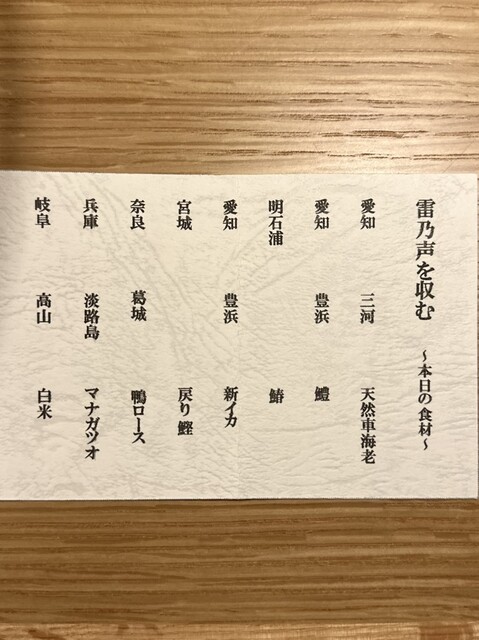 雷乃声を収む ～本日の食材～
愛知 三河 天然車海老
愛知 豊浜 鱧
明石浦 鰆
愛知 豊浜 新イカ
宮城 戻り鰹
奈良 葛城 鴨ロース
兵庫 淡路島 マナガツオ
岐阜 高山 白米